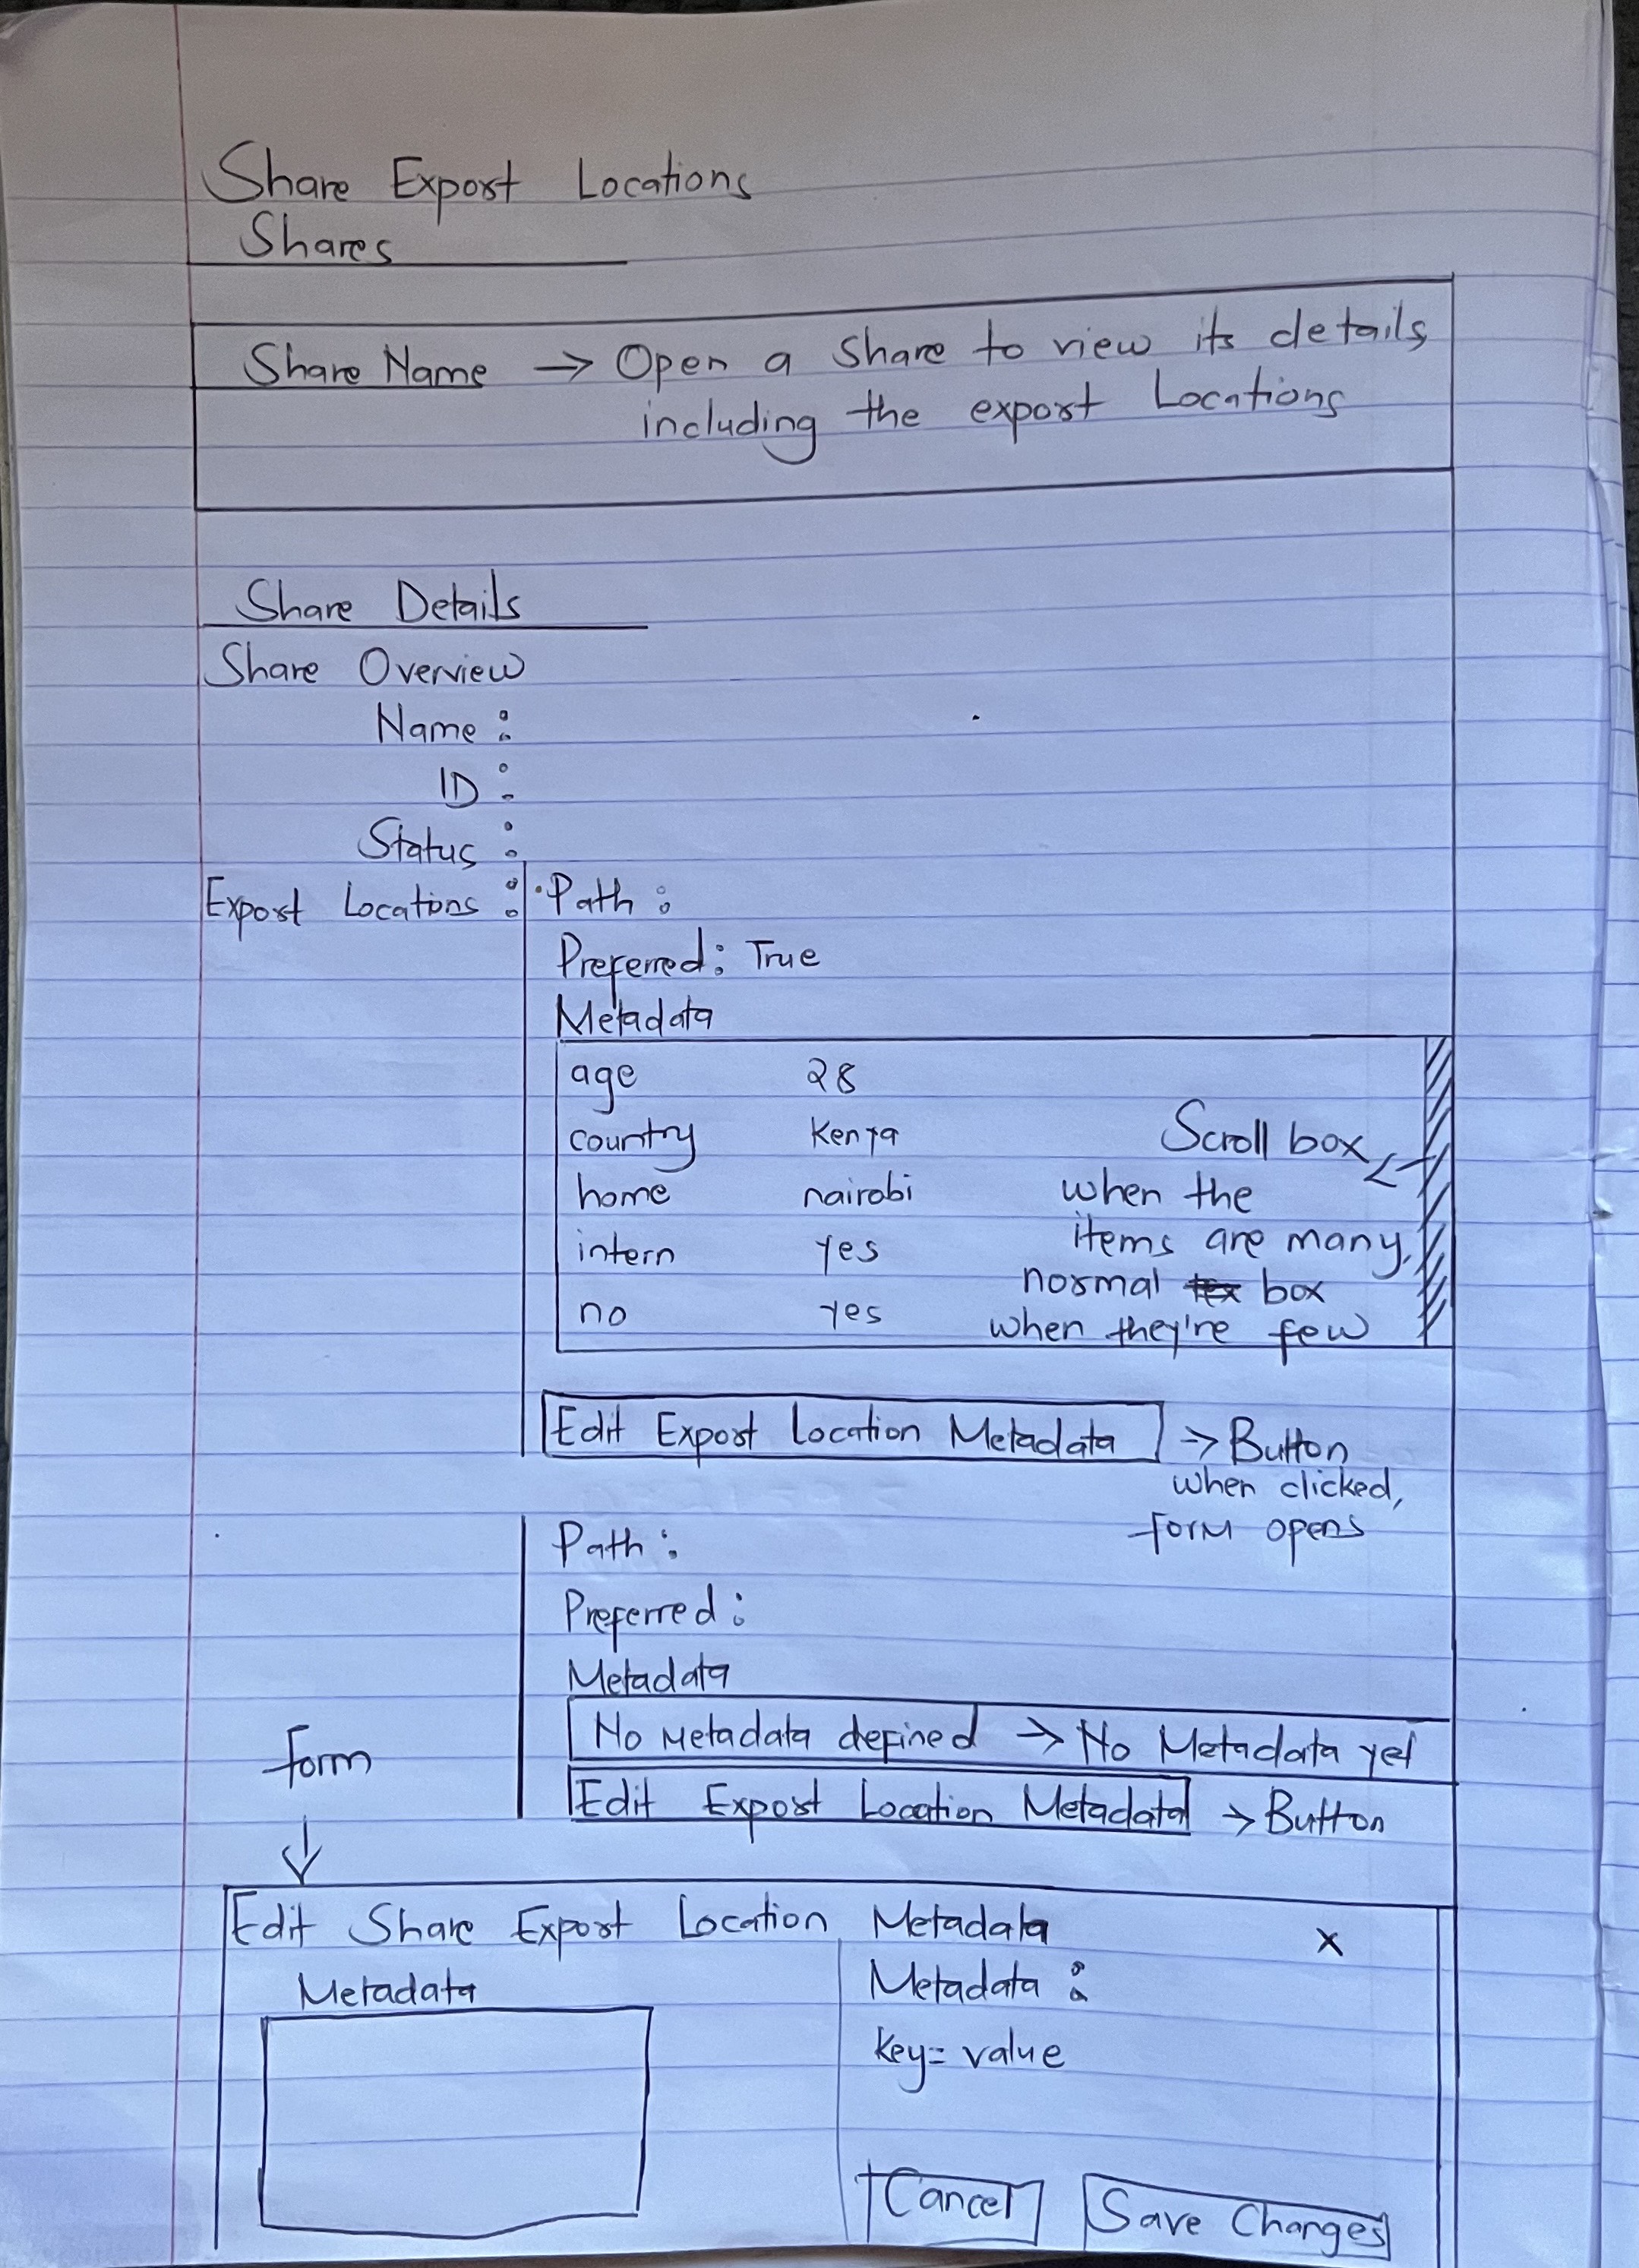 Share Export Locations
Shares
Share Name → Open a Share to view its details,
including the export Locations
Share Details
Share Overview
Name :
ID :
Status :
Export Locations : Path :
Preferred : True
Metadata
age 28
country Kenya
home nairobi
intern yes
no yes
Scroll box
when the
items are many,
normal box
when they're few
Edit Export Location Metadata → Button
when clicked,
form opens
Path :
Preferred :
Metadata
No Metadata defined → No Metadata yet
Edit Export Location Metadata → Button
form
↓
Edit Share Export Location Metadata x
Metadata
Metadata :
key= value
Cancel Save Changes